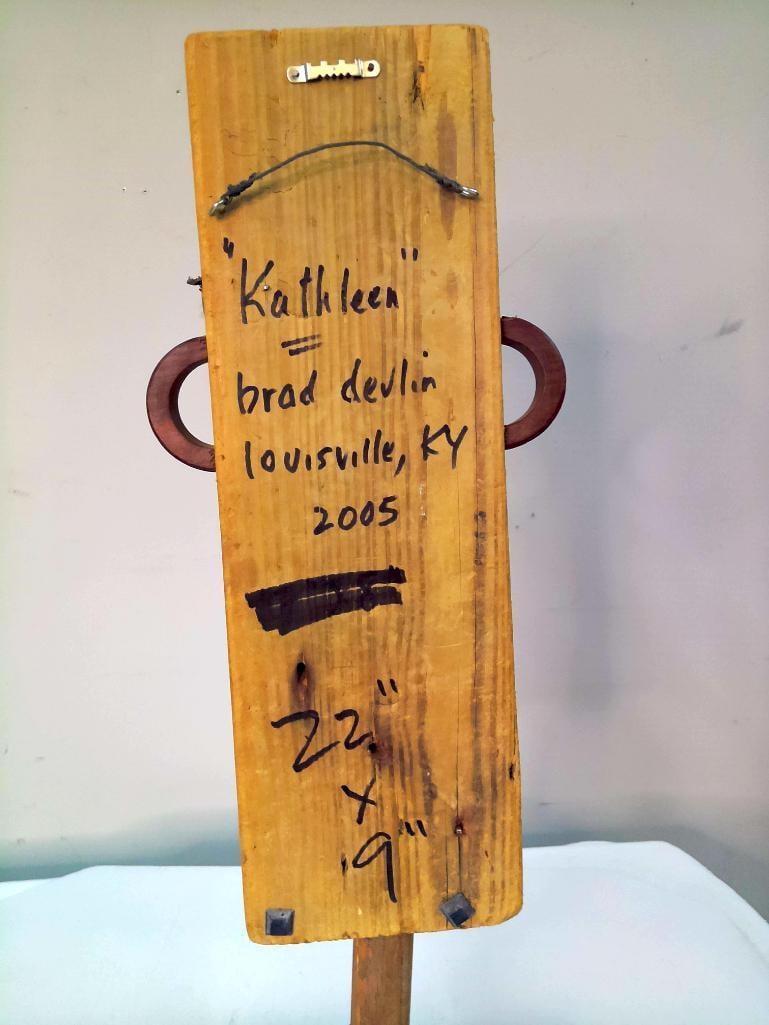 "Kathleen"
brad devlin
louisville, KY
2005
22"
x
9"